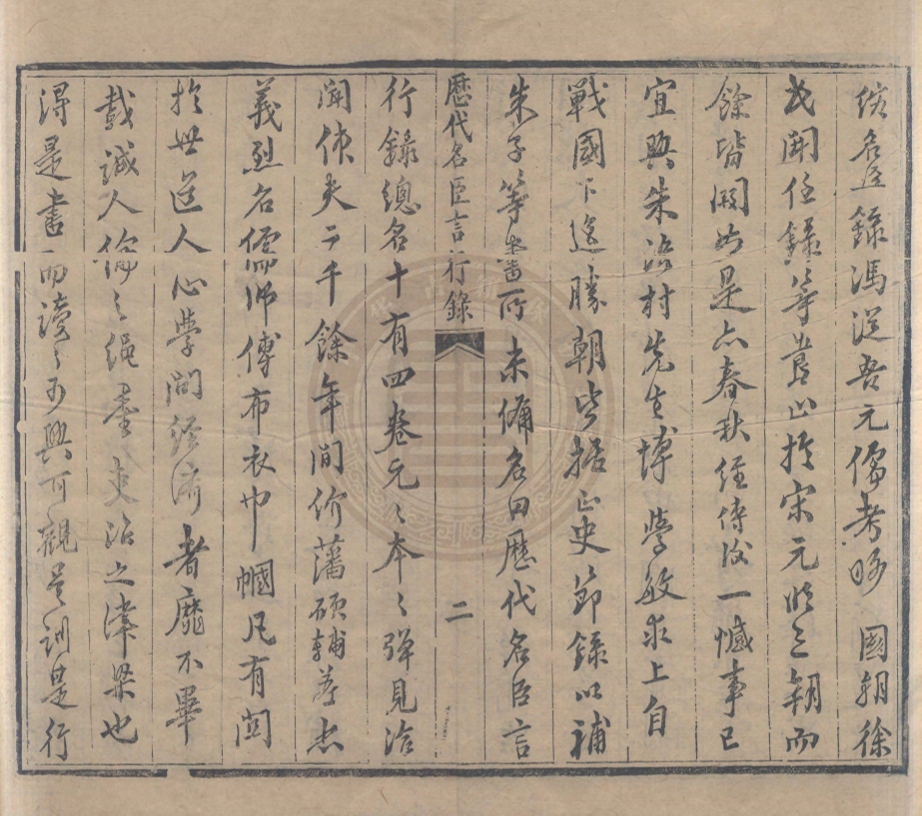 續名臣錄馮從吾元儒考略　國朝徐
開任錄等豈止於宋元明三朝而
餘皆闕如是亦春秋經傳後一憾事已
宜興朱 村先生博學敏求上自
戰國下迄勝朝皆據正史節錄以補
朱子等書所未備名曰歷代名臣言
歷代名臣言行錄　二
行錄總名十有四卷元元本本殫見洽
聞使夫二千餘年間价藩碩輔孝忠
義烈名儒師傅布衣巾幗凡有關
於世道人心學問經濟者靡不畢
載誠人倫之繩墨吏治之津梁也
得是書而讀之可興可觀是訓是行